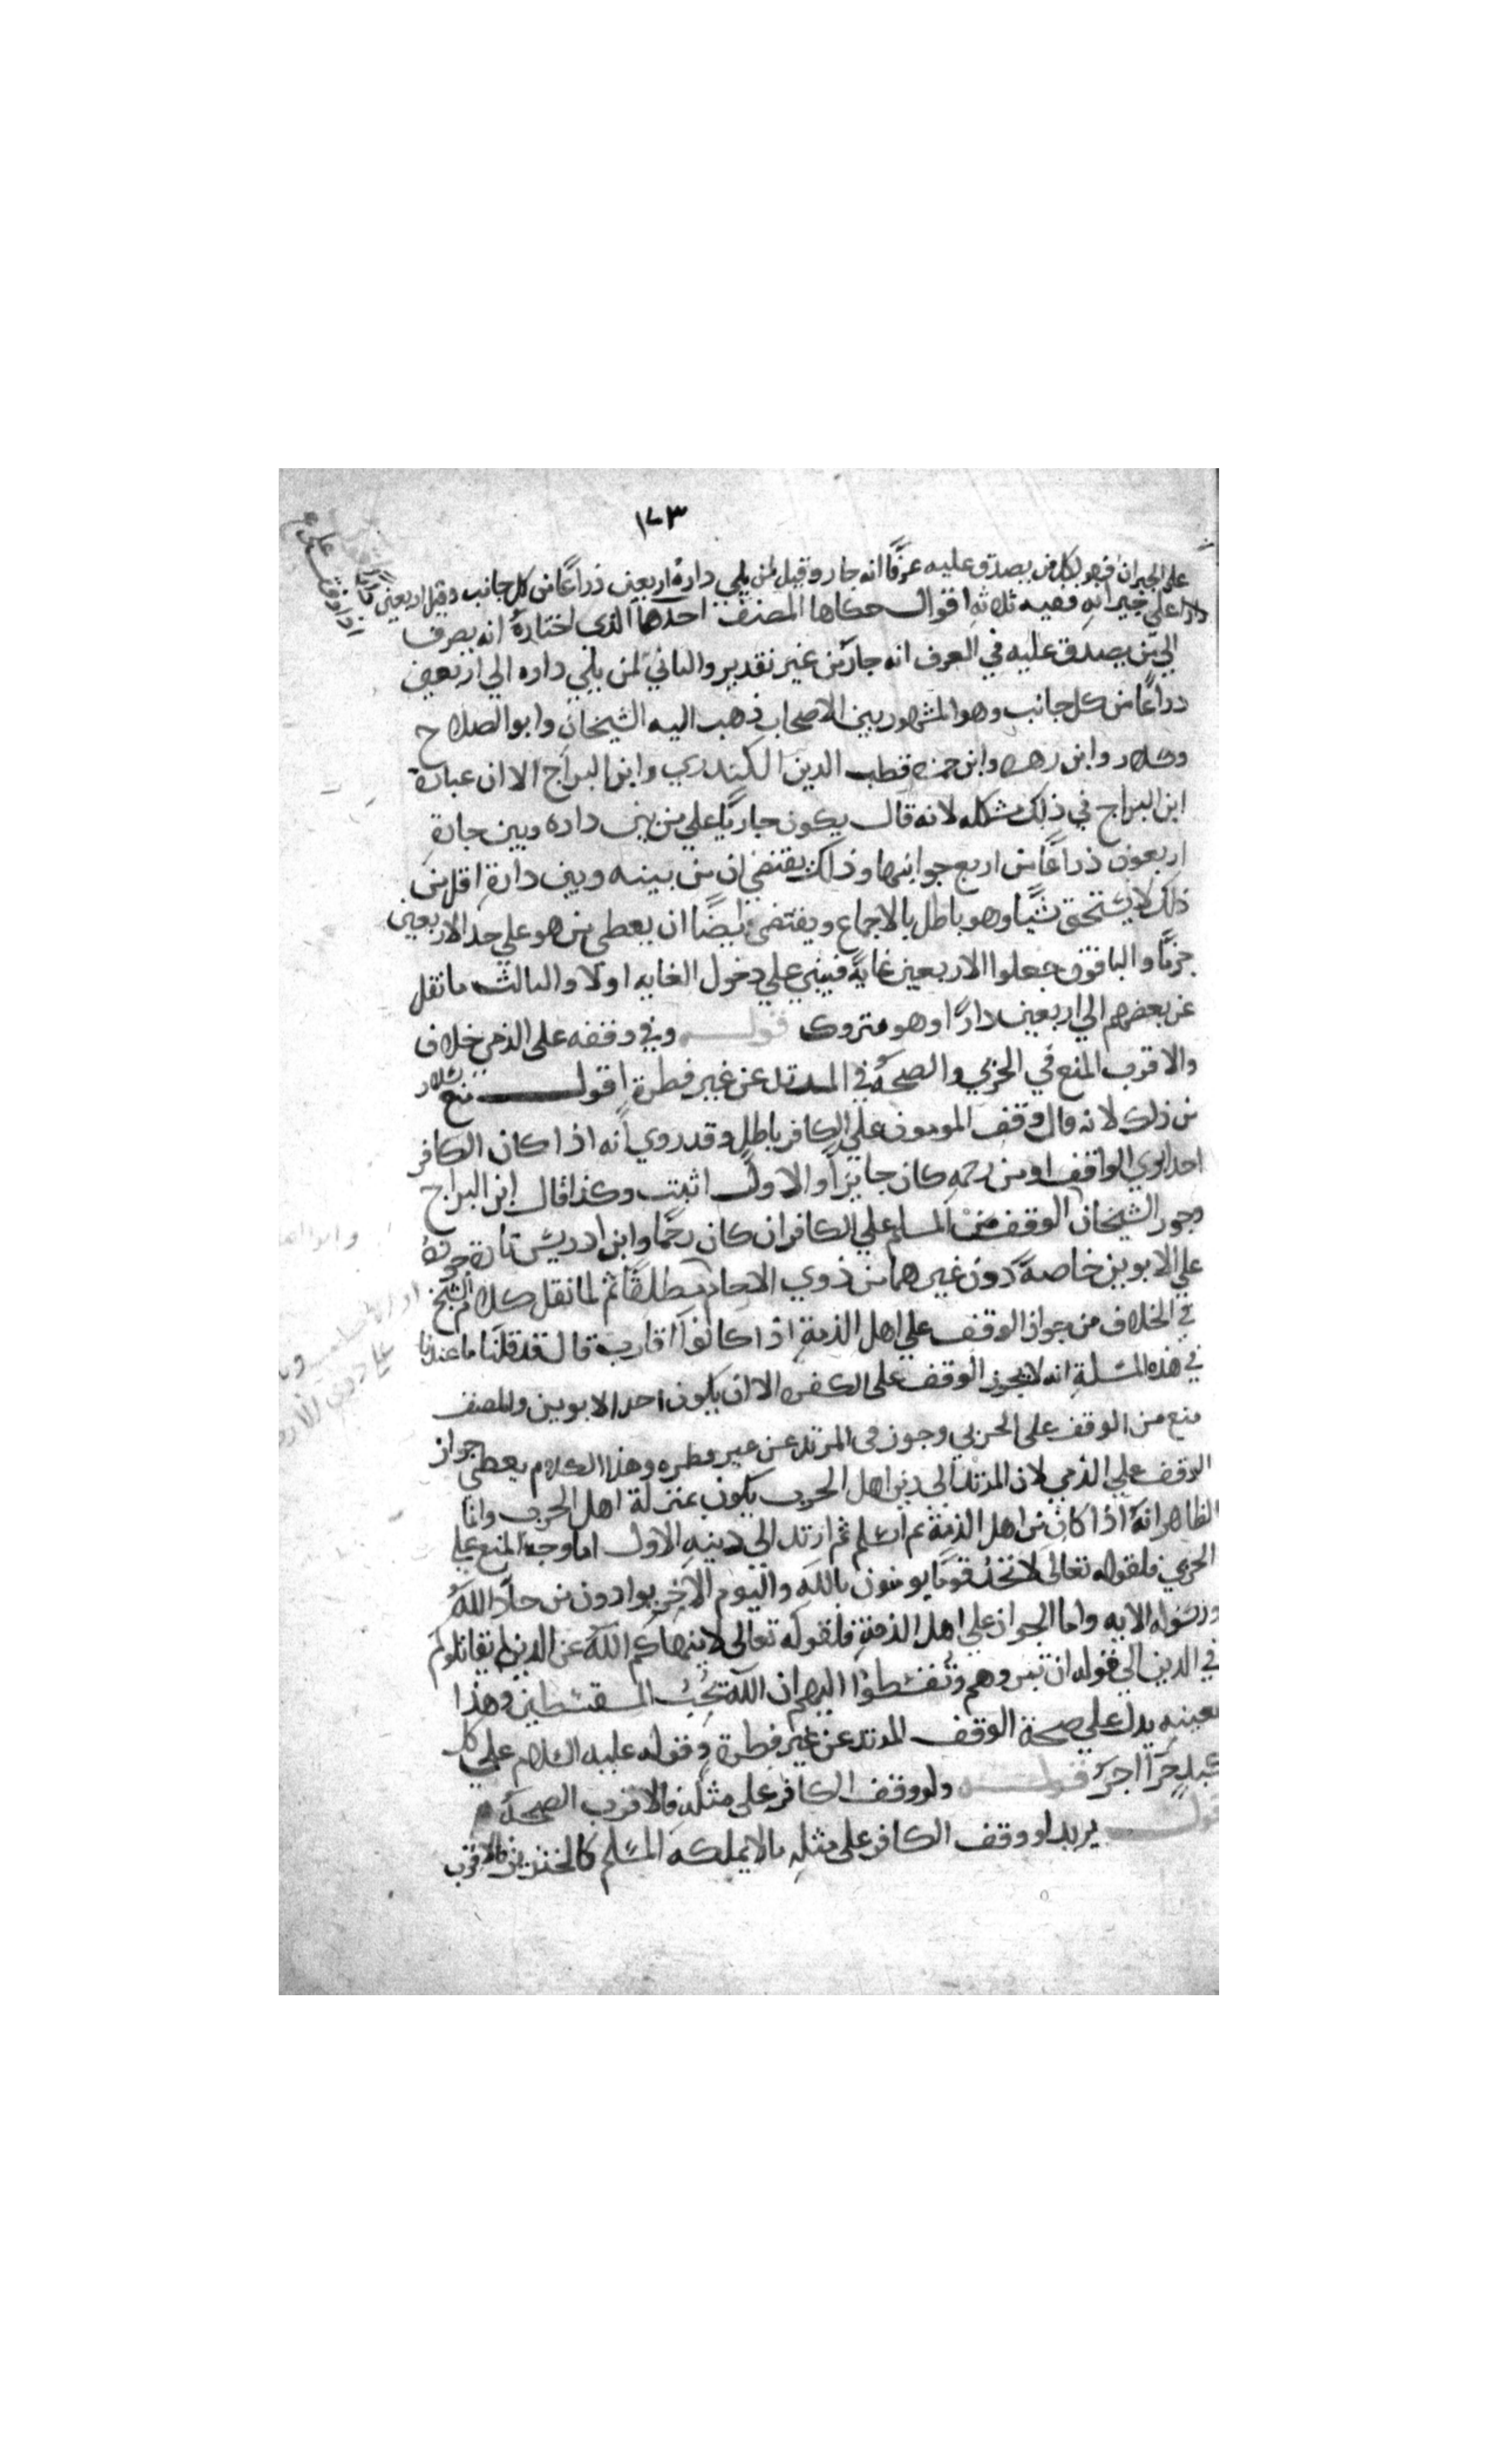 ١٧٣
على الجيران فهو لكل من يصدق عليه عرفًا انه جار وقيل لمن يلي داره اربعين ذراعًا من كل جانب وقيل اربعين
دارا علي جيرانه ففيه ثلاثه اقوال حكاها المصنف احدها الذى اختاره انه يصرف
الي من يصدق عليه في العرف انه جار من غير تقدير والثاني لمن يلي داره الي اربعين
ذراعًا من كل جانب وهو المشهور بين الاصحاب ذهب اليه الشيخان وابو الصلاح
وسلار وابن زهره وابن حمزه وقطب الدين الكيدري وابن البراج الا ان عبارة
ابن البراج في ذلك مشكله لانه قال يكون جاريًا علي من بين داره وبين جاره
اربعون ذراعًا من اربع جوانبها وذلك يقتضي ان من بينه وبين داره اقل من
ذلك لا يستحق شيًا وهو باطل بالاجماع ويقتضي ايضًا ان يعطي من هو علي حد الاربعين
جزمًا والباقون جعلوا الاربعين غايةً فيبني علي دخول الغايه اولا والثالث ما نقل
عن بعضهم الي اربعين دارًا وهو متروك قوله وفي وقفه على الذمي خلاف
والاقرب المنع في الحربي والصحة في المرتد عن غير فطرة اقول منع سلار
من ذلك لانه قال وقف المومن علي الكافر باطل وقد روي انه اذا كان الكافر
احد ابوي الواقف او من رحمه كان جايزًا والاول اثبت وكذا قال ابن البراج
وجوز الشيخان الوقف من المسلم علي الكافر ان كان رحمًا وابن ادريس تارة جوزه
علي الابوين خاصة دون غيرهما من ذوي الارحام مطلقًا ثم لما نقل كلام الشيخ
في الخلاف من جواز الوقف علي اهل الذمة اذا كانوا اقارب قال قد قلنا ما عندنا
في هذه المسلة انه لا يجوز الوقف على الكفره الا ان يكون احد الابوين والمصنف
منع من الوقف على الحربي وجوز فى المرتد عن غير فطره وهذا الكلام يعطي جواز
الوقف علي الذمي لان المرتد الى دين اهل الحرب يكون بمنزلة اهل الحرب وانما
الظاهر انه اذا كان من اهل الذمة ثم اسلم ثم ارتد الى دينه الاول اما وجه المنع علي
الحربي فلقوله تعالى لا تجد قومًا يومنون بالله واليوم الاخر يوادون من حاد الله
ورسوله الايه واما الجواز علي اهل الذمة فلقوله تعالى لا ينهاكم الله عن الذين لم يقاتلوكم
في الدين الي قوله ان تبروهم وتقسطوا اليهم ان الله يحب المقسطين وهذا
بعينه يدل علي صحة الوقف المرتد عن غير فطرة وقوله عليه السلام علي كل
كبد حرا اجر قوله ولو وقف الكافر علي مثله فالاقرب الصحة
قول يريد لو وقف الكافر على مثله ما لا يملكه المسلم كالخنزير فالاقرب